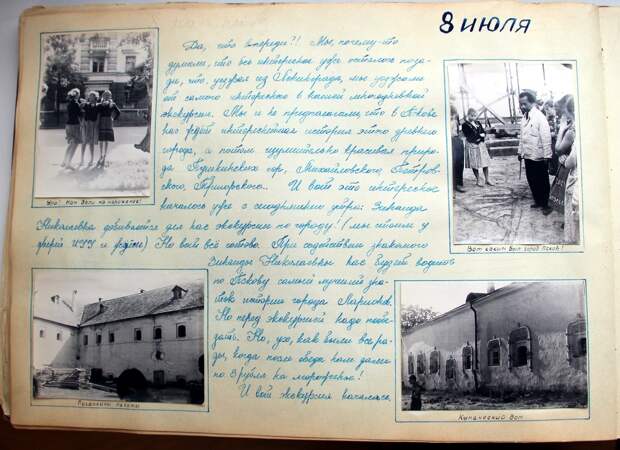 8 ИЮЛЯ
Да, что впереди?! Мы, почему-то
думали, что все интересное уже осталось поза-
ди, что, уезжая из Ленинграда, мы уезжаем
от самого интересного в нашей многодневной
экскурсии. Мы и не предполагали, что в Пскове
нас ждёт интереснейшая история этого древнего
города, а потом изумительно красивая приро-
да Пушкинских гор, Михайловского, Петров-
ского, Тригорского... И вот это интересное
началось уже с сегодняшнего утра: Зинаида
Николаевна добивается для нас экскурсию по городу! (мы стоим у
дверей и ждём) Но вот всё готово. При содействии знакомого
Зинаиды Николаевны нас будет водить
по Пскову самый лучший зна-
ток истории города Ларионов.
Но перед экскурсией надо пообе-
дать. Но, ух, как были все ра-
ды, когда после обеда нам дали
по 3 рубля на мороженое!
И вот экскурсия началась.
Ура! Нам дали на мороженое!
Вот каким был город Псков!
Поганкины палаты
Купеческий дом